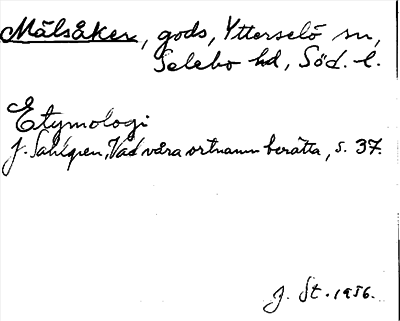 Målsåker, gods, Ytterselö sn,
Selebo hd, Söd. l.
Etymologi
J. Sahlgren, Vad våra ortnamn berätta, s. 37.
J. St. 1956.